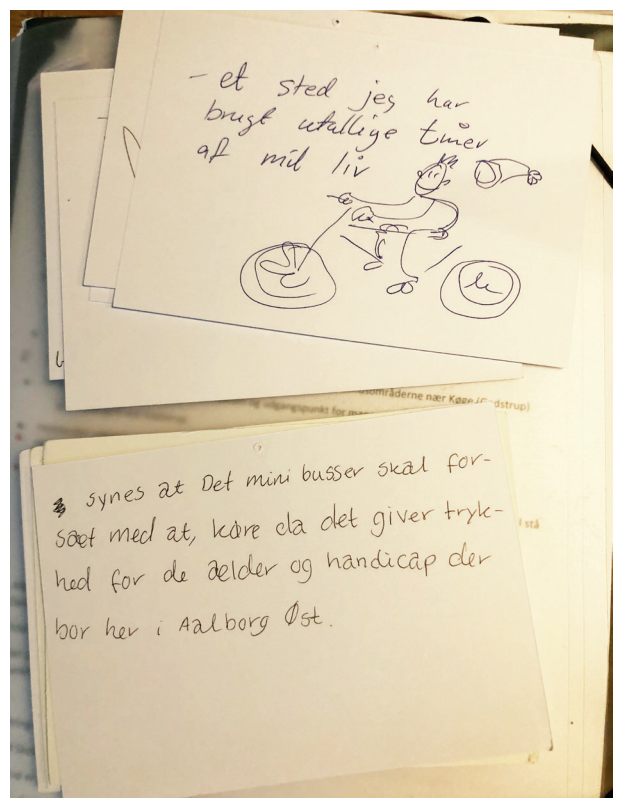 - et sted jeg har
brugt utallige timer
af mit liv
områderne nær Køge (Gødstrup)
og udgangspunkt for
synes at Det mini busser skal for-
sæt med at, køre da det giver tryk-
hed for de ælder og handicap der
bor her i Aalborg Øst.
l stå